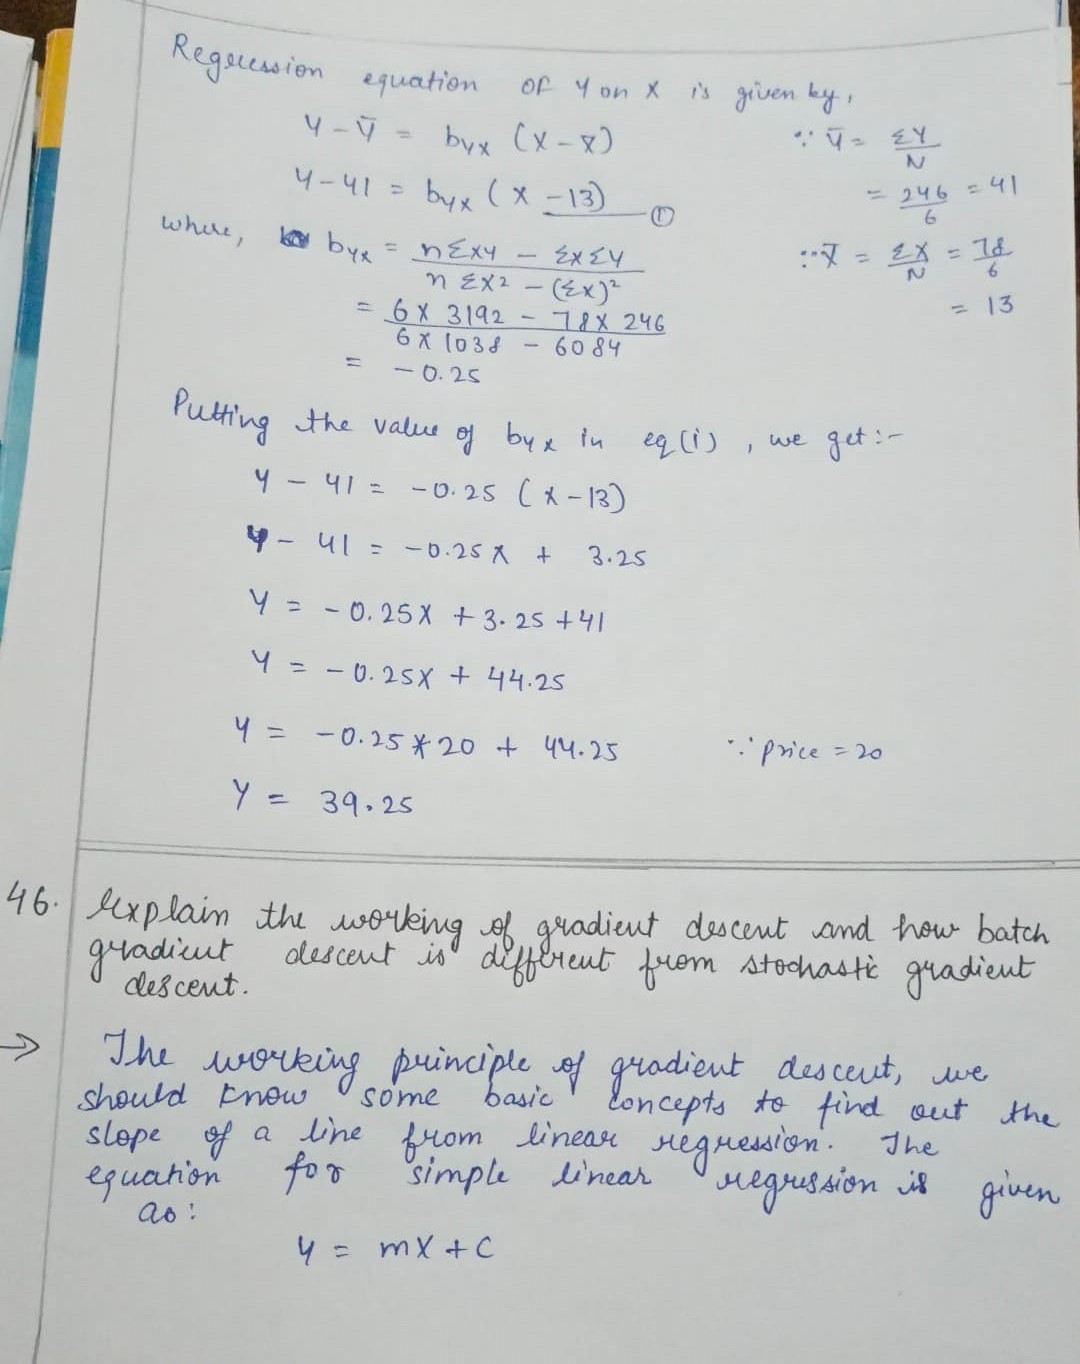 Regression equation of Y on X is given by,
Y - Ȳ = byx (X - X̄)
∵ Ȳ = ΣY/N
Y - 41 = byx (X - 13) —①
= 246/6 = 41
where, byx = nΣXY - ΣXΣY / nΣX² - (Σx)²
∵ X̄ = ΣX/N = 78/6
= 13
= 6 X 3192 - 78 X 246 / 6 X 1038 - 6084
= -0.25
Putting the value of byx in eq(i), we get:-
Y - 41 = -0.25 (X - 13)
Y - 41 = -0.25X + 3.25
Y = -0.25X + 3.25 + 41
Y = -0.25X + 44.25
Y = -0.25 * 20 + 44.25 ∵ price = 20
Y = 39.25
46. Explain the working of gradient descent and how batch
gradient descent is different from stochastic gradient
descent.
→ The working principle of gradient descent, we
should know some basic concepts to find out the
slope of a line from linear regression. The
equation for simple linear regression is given
as:
Y = mX + C